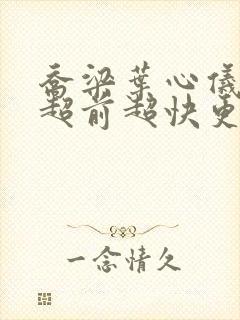 乔梁叶心仪
超前超快更
一念情久